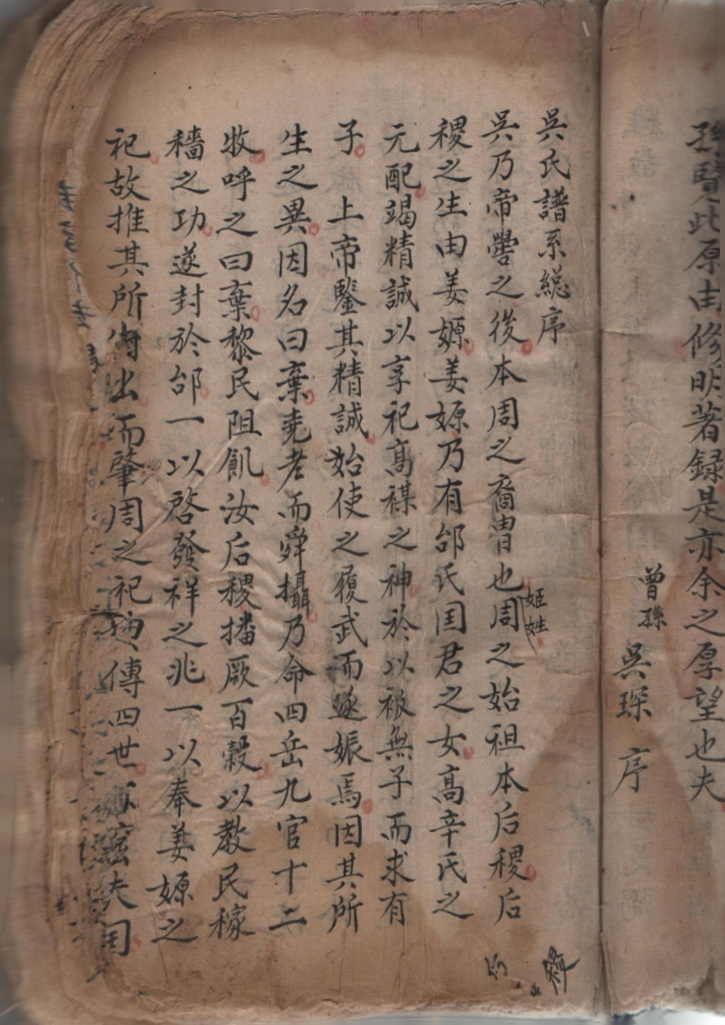 孫覽此原由修明著録是亦余之厚望也夫
曾孫吳琛序
吳氏譜系總序
吳乃帝嚳之後本周之裔胄也周之始祖本后稷后
姬姓
稷之生由姜嫄姜嫄乃有邰氏囯君之女高辛氏之
元配竭精誠以享祀高禖之神於以祓無子而求有
子上帝鑒其精誠始使之履武而遂娠焉因其所
生之異因名曰棄堯老而舜攝乃命四岳九官十二
牧呼之曰棄黎民阻飢汝后稷播厥百穀以教民稼
穡之功遂封於邰一以啓發祥之兆一以奉姜嫄之
祀故推其所出而肇周之祀傳四世密夫用